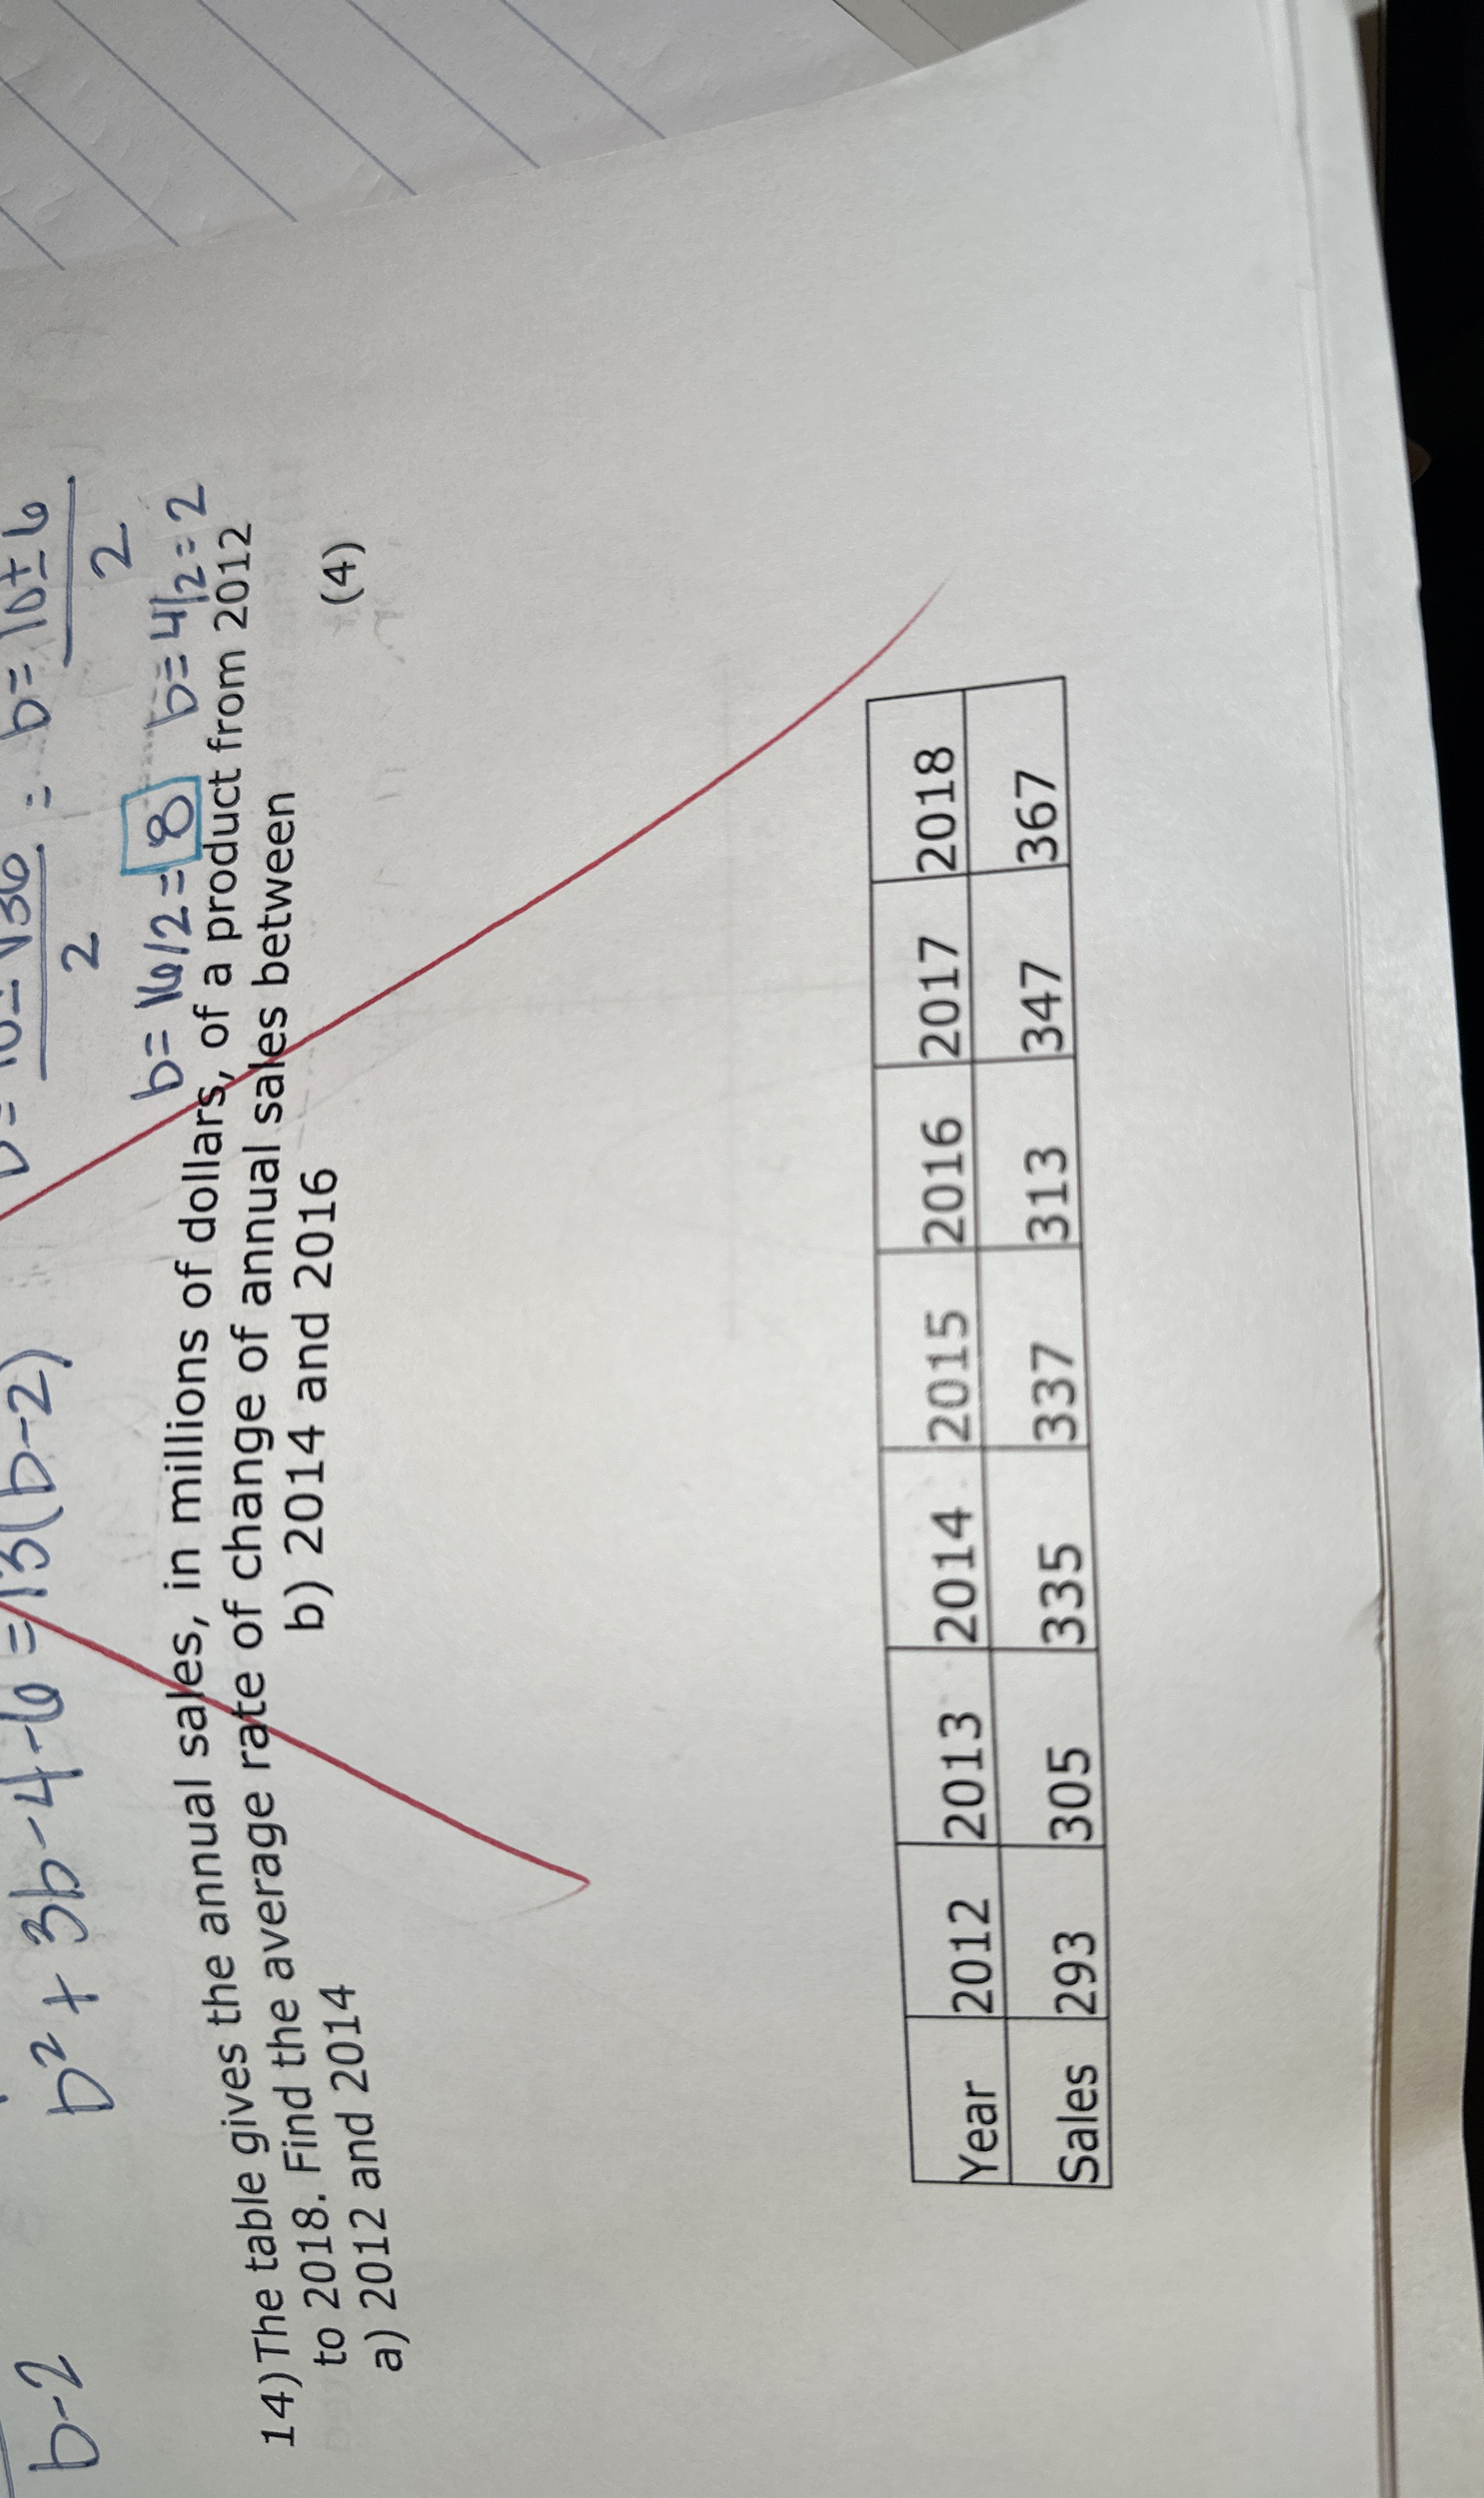 b-2
b² + 3b - 4 - 6 = 13(b-2)
2
= b = 10 ± 6
2
b = 16/2 = 8 b = 4/2 = 2
14) The table gives the annual sales, in millions of dollars, of a product from 2012
to 2018. Find the average rate of change of annual sales between
a) 2012 and 2014 b) 2014 and 2016 (4)
Year 2012 2013 2014 2015 2016 2017 2018
Sales 293 305 335 337 313 347 367